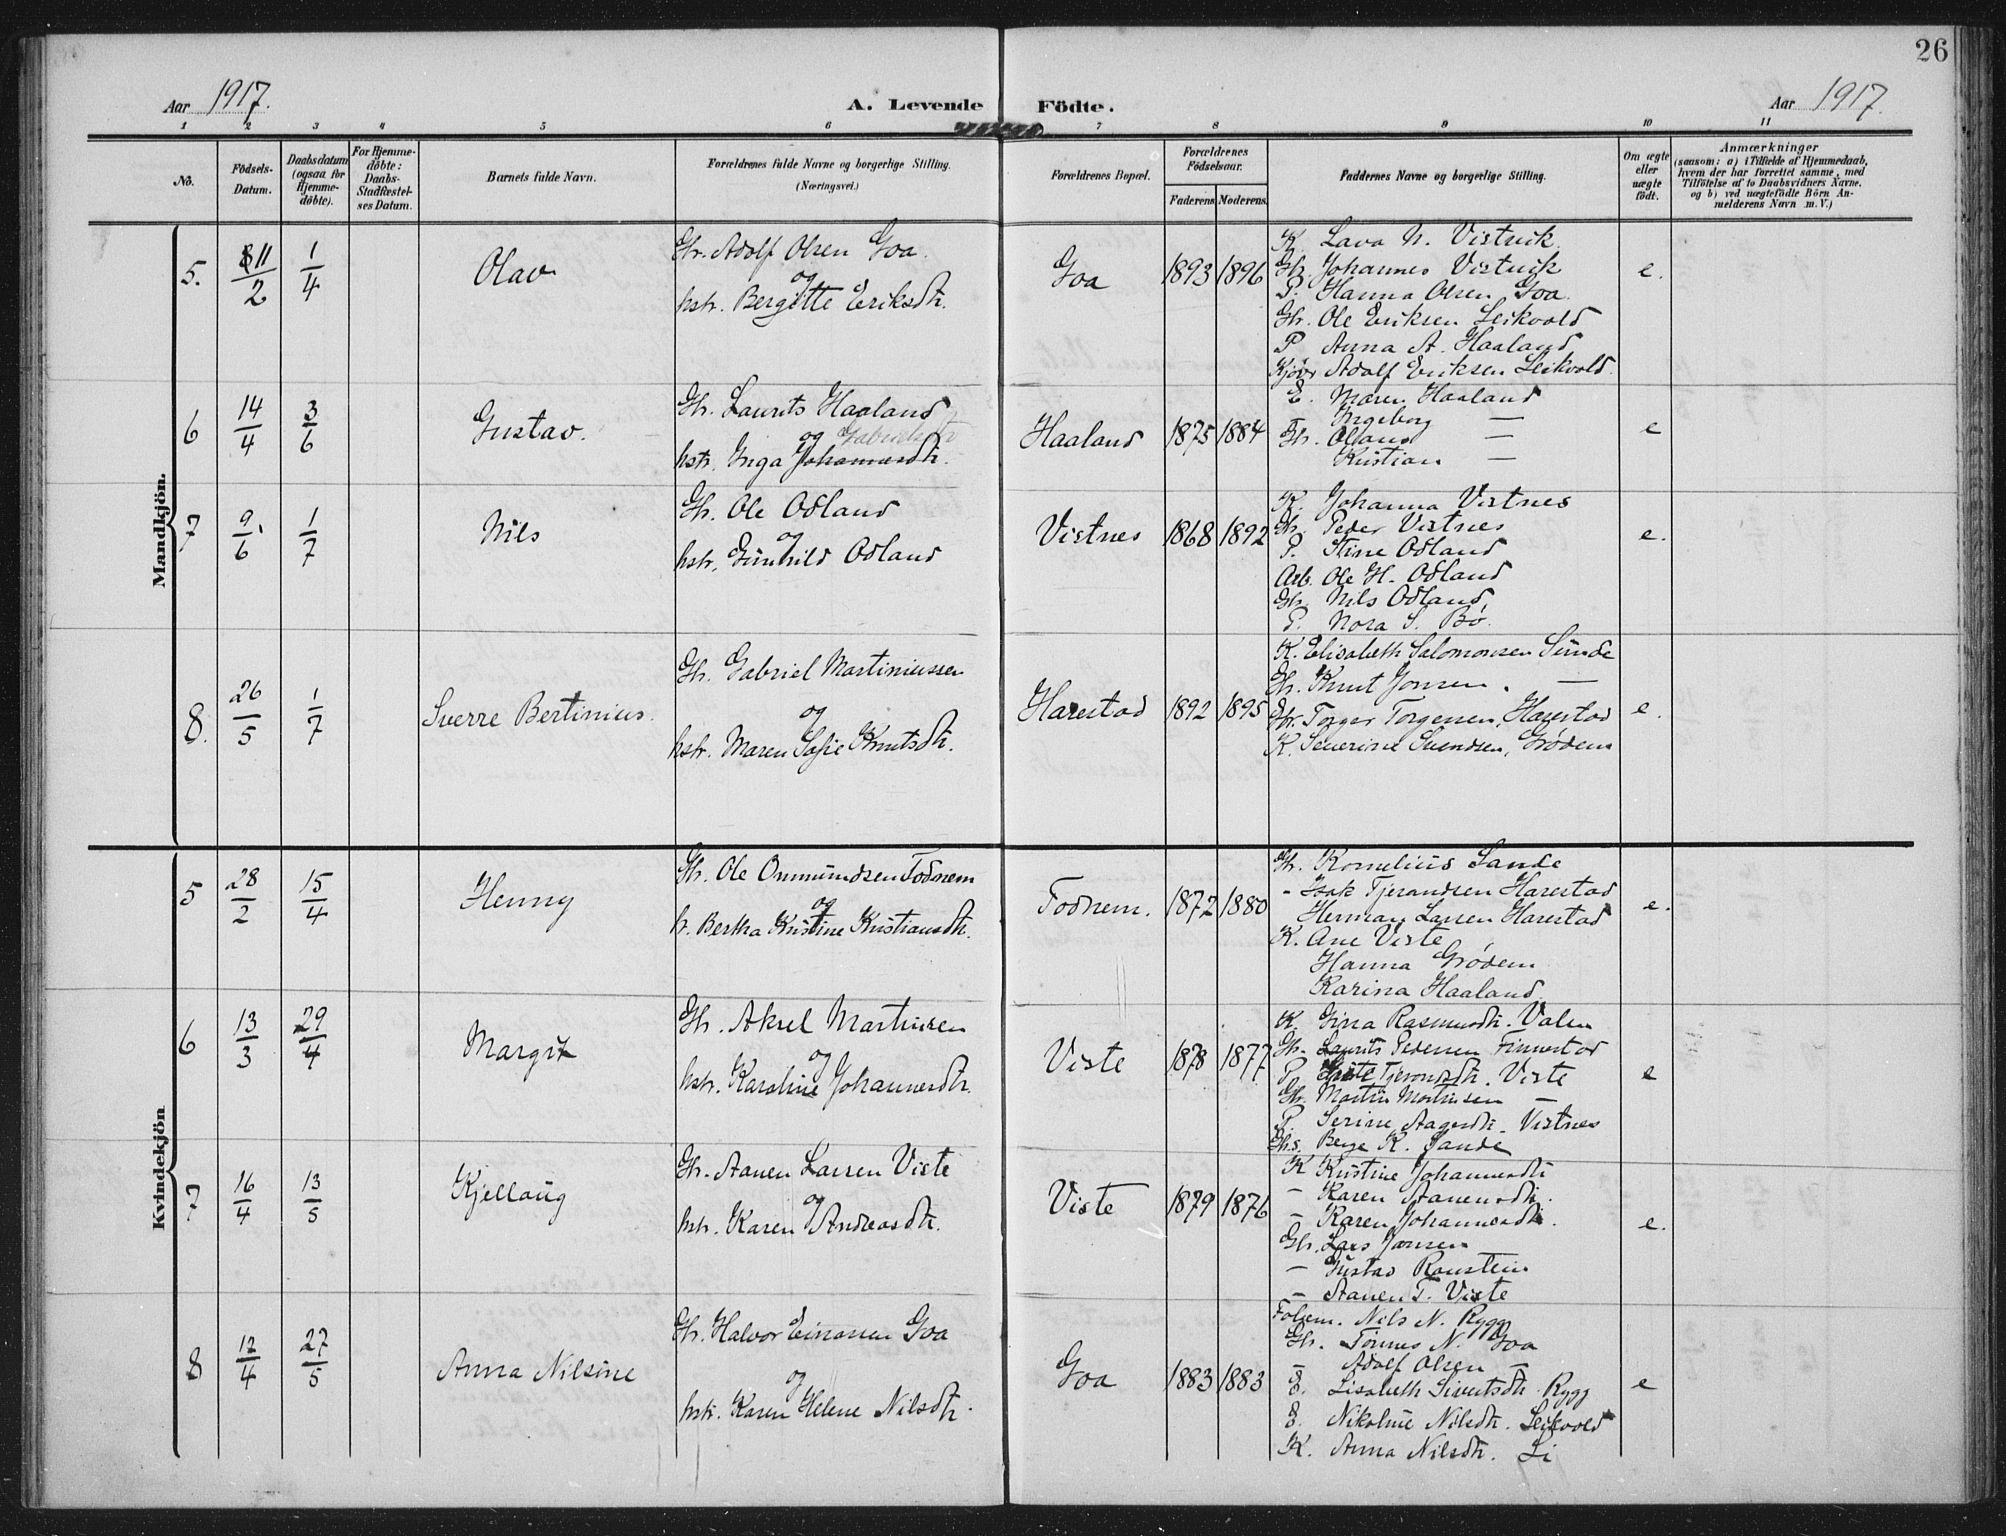 26
Aar 1917.
A. Levende Födte.
Aar 1917.
1 2 3 4 5 6 7 8 9 10 11
No.
Födsels-Datum.
Daabsdatum (ogsaa for Hjemme-döbte).
For Hjemme-döbte: Daabs-Stadfæstel-ses Datum.
Barnets fulde Navn.
Forældrenes fulde Navne og borgerlige Stilling.
(Næringsvei.)
Forældrenes Bopæl.
Forældrenes Födselsaar.
Faderens. Moderens.
Faddernes Navne og borgerlige Stilling.
Om ægte eller uægte født.
Anmærkninger
(saasom: a) i Tilfælde af Hjemmedaab,
hvem der har forrettet samme, med
Tilföielse af to Daabsvidners Navne,
og b) ved uægtefödte Börn An-
melderens Navn m. V.)
Mandkjön.
5. 11/2 1/4 Olav
Gbr. Adolf Olsen Goa.
og
hstr. Bergitte Eriksdtr.
Goa 1893 1896
K. Lava N. Vistvik
Gbr. Johannes Vistvik
P. Hanna Olsen Goa.
Gbr. Ole Eriksen Leikvold
P Anna A. Haaland
Kjøbr Adolf Eriksen Leikvold.
e.
6 14/4 3/6 Gustav.
Gbr. Laurits Haaland
og
hstr. Inga Johannesdtr.
Haaland 1875 1884
E. Maren Haaland
Ingeborg —
Gbr. Olaus —
Kristian —
e
7 9/6 1/7 Nils
Gbr. Ole Odland
og
hstr. Gunhild Odland
Vistnes 1868 1892
K. Johanna Vistnes
Gbr. Peder Vistnes
P. Stine Odland
Arb. Ole H. Odland
Gbr. Nils Odland
P. Nora S. Bø.
e.
8. 26/5 1/7 Sverre Bertinius.
Gbr. Gabriel Martiniussen
og
hstr. Maren Sofie Knutsdtr.
Harestad 1892 1895
K. Elisabeth Salomonsen Sunde
Gbr. Knut Jonsen. —
Gbr. Torger Torgersen, Harestad
K. Severine Svendsen, Grødem
e.
Kvindekjön
5 28/2 15/4 Henny
Gbr. Ole Ommundsen Todnem
og
h. Bertha Kristine Kristiansdtr.
Todnem. 1872 1880
Gbr. Kornelius Sande
- Isak Tjerandsen Harestad
Herman Larsen Harestad
K. Ane Viste
Hanna Grødem
Karina Haaland.
e.
6 13/3 29/4 Margit
Gbr. Aksel Martinsen
og
hstr. Karoline Johannesdtr.
Viste 1878 1877
K. Gina Rasmusdtr. Valen
Gbr. Laurits Pedersen Finnestad
P. Tjerandsdtr. Viste
Gbr. Martin Martinsen —
P. Serine Aagesdtr. Vistnes
Gbs. Berge K. Sande
e
7 16/4 13/5 Kjellaug
Gbr. Aanen Larsen Viste
og
hstr. Karen Andreasdtr.
Viste 1879 1876
K Kristine Johannesdtr
— Karen Aanensdtr.
— Karen Johannesdtr.
Gbr. Lars Jansen
— Gustav Ranstein
— Aanen T. Viste
e.
8 12/4 27/5 Anna Nilsine
Gbr. Halvor Einarsen Goa
og
hstr. Karen Helene Nilsdtr.
Goa 1883 1883
Folem. Nils N. Rygg
Gbr. Tønnes N. Goa
— Adolf Olsen —
E. Lisabeth Sivertsdtr. Rygg
E. Nikoline Nilsdtr. Leikvold
K. Anna Nilsdtr. Li
e